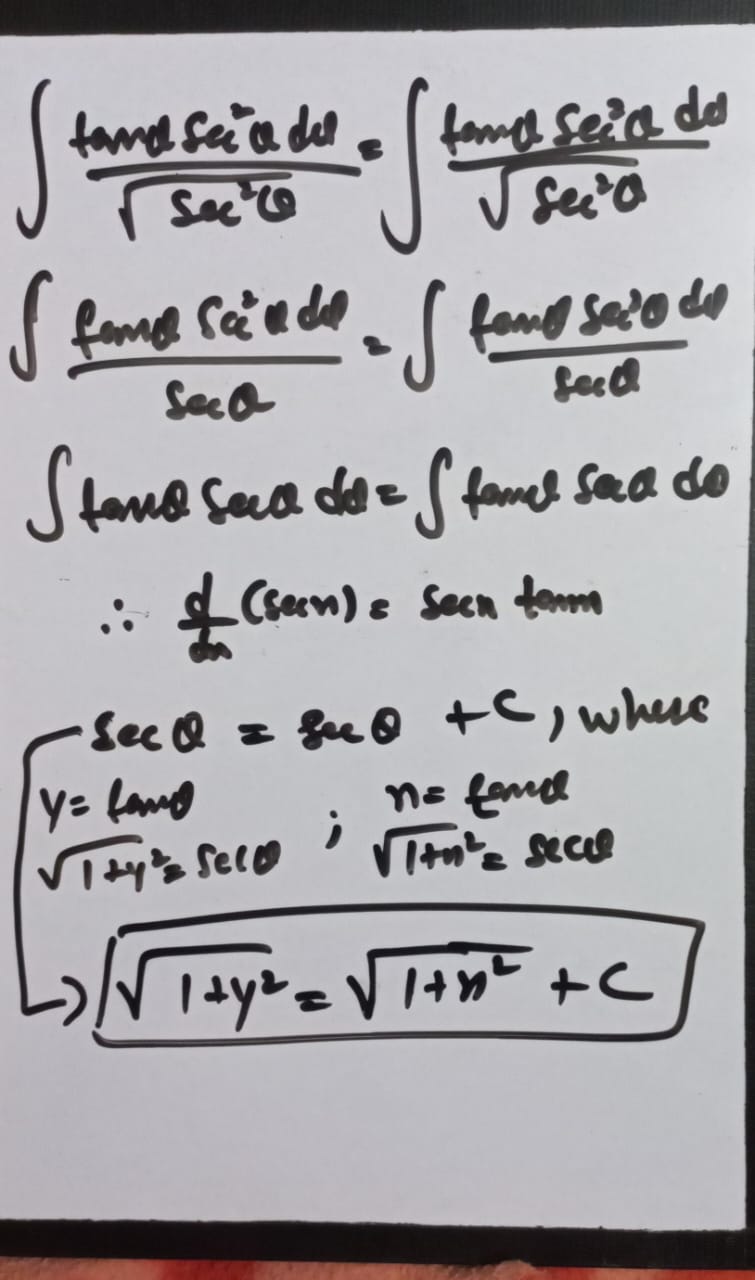 ∫ tanθ sec²θ dθ / √sec²θ = ∫ tanθ sec²θ dθ / √sec²θ
∫ tanθ sec²θ dθ / secθ = ∫ tanθ sec²θ dθ / secθ
∫ tanθ secθ dθ = ∫ tanθ secθ dθ
∴ d/dx (secx) = secx tanx
secθ = secθ + C, where
y = tanθ ; x = tanθ
√1+y² = secθ ; √1+x² = secθ
√1+y² = √1+x² + C